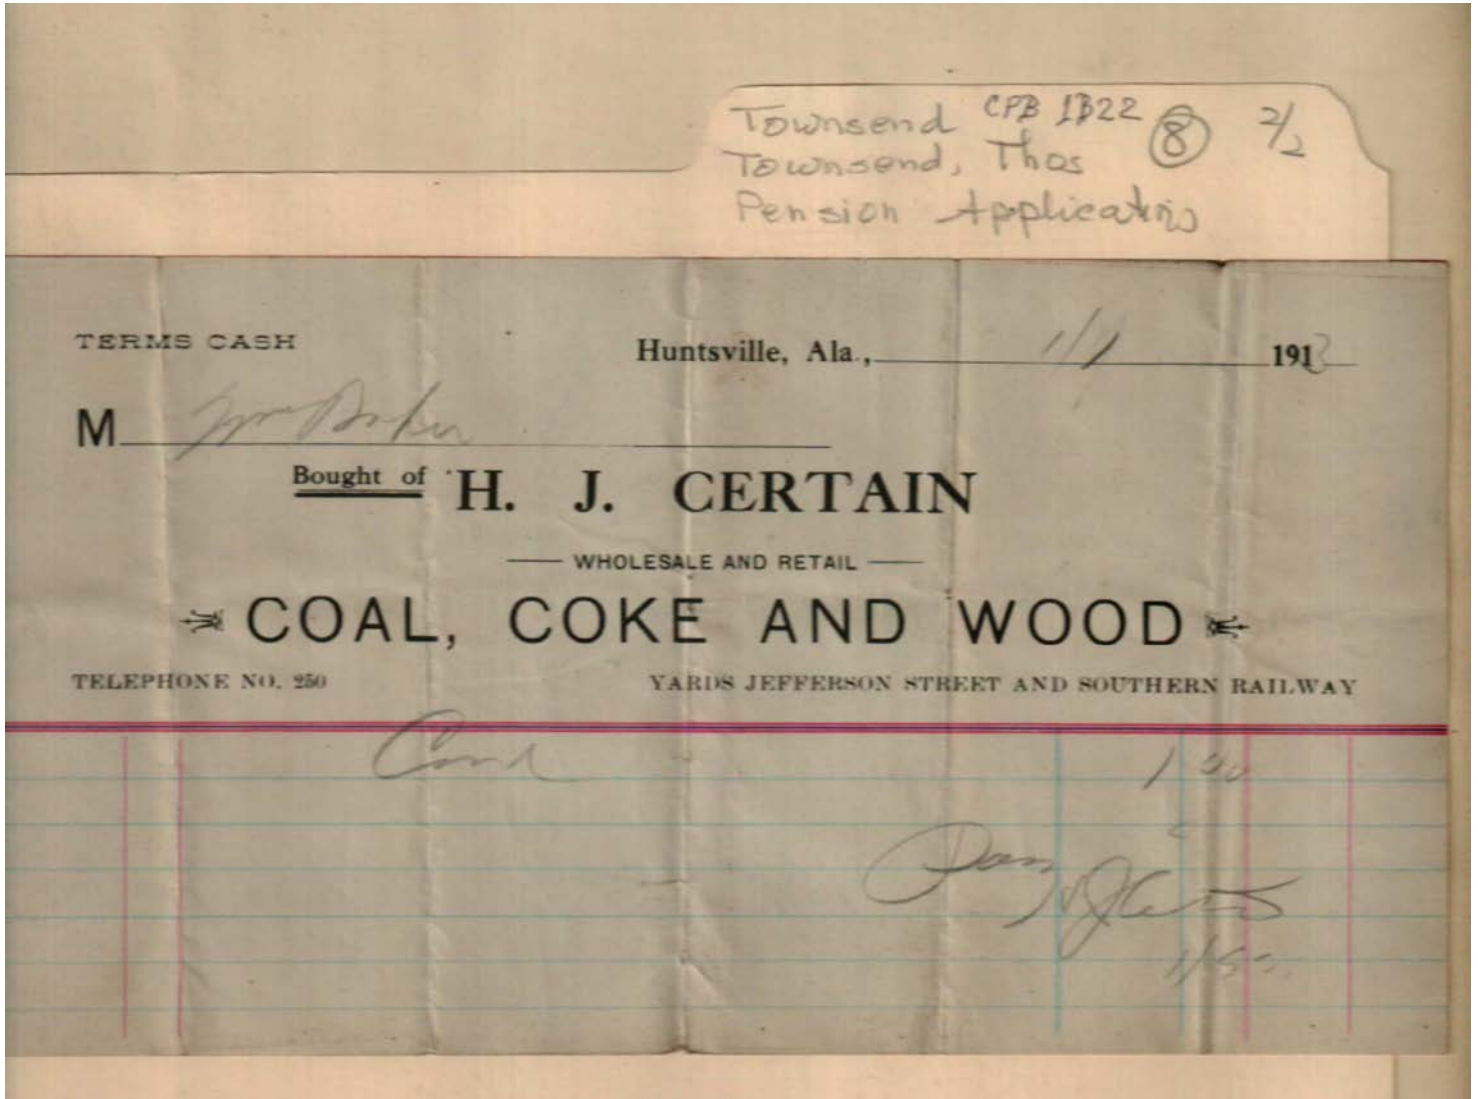 Townsend CPB 1B22 8 2/2
Townsend, Thos
Pension Applications
TERMS CASH Huntsville, Ala., 1/1 1913
M Wm Baker
Bought of H. J. CERTAIN
WHOLESALE AND RETAIL
COAL, COKE AND WOOD
TELEPHONE NO. 250 YARDS JEFFERSON STREET AND SOUTHERN RAILWAY
Coal 1 00